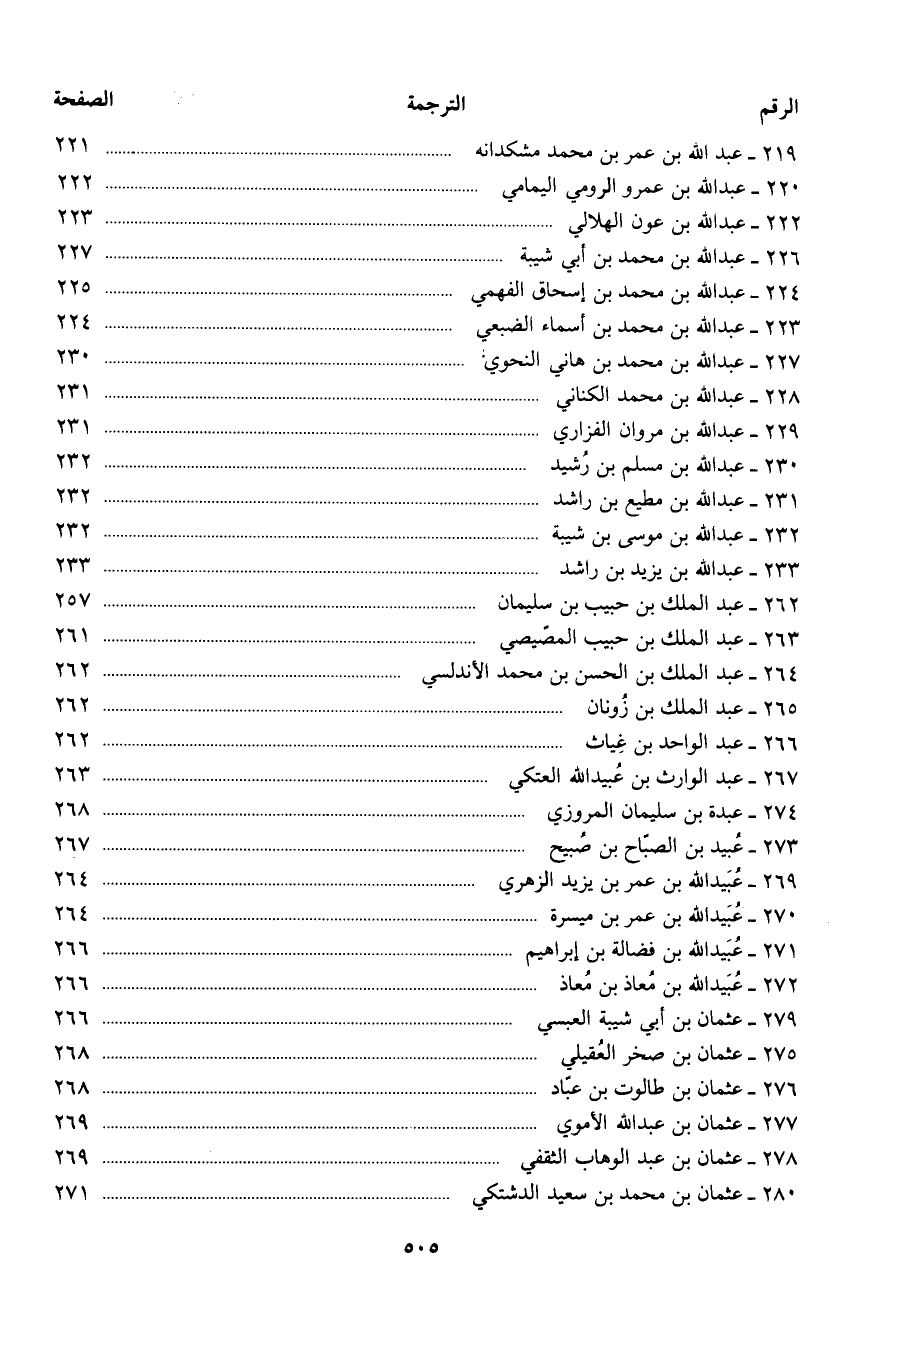 الرقم الترجمة الصفحة
٢١٩ ـ عبد الله بن عمر بن محمد مشكدانه ........ ٢٢١
٢٢٠ ـ عبدالله بن عمرو الرومي اليمامي ........ ٢٢٢
٢٢٢ ـ عبدالله بن عون الهلالي ........ ٢٢٣
٢٢٦ ـ عبدالله بن محمد بن أبي شيبة ........ ٢٢٧
٢٢٤ ـ عبدالله بن محمد بن إسحاق الفهمي ........ ٢٢٥
٢٢٣ ـ عبدالله بن محمد بن أسماء الضبعي ........ ٢٢٤
٢٢٧ ـ عبدالله بن محمد بن هاني النحوي ........ ٢٣٠
٢٢٨ ـ عبدالله بن محمد الكناني ........ ٢٣١
٢٢٩ ـ عبدالله بن مروان الفزاري ........ ٢٣١
٢٣٠ ـ عبدالله بن مسلم بن رُشيد ........ ٢٣٢
٢٣١ ـ عبدالله بن مطيع بن راشد ........ ٢٣٢
٢٣٢ ـ عبدالله بن موسى بن شيبة ........ ٢٣٢
٢٣٣ ـ عبدالله بن يزيد بن راشد ........ ٢٣٣
٢٦٢ ـ عبد الملك بن حبيب بن سليمان ........ ٢٥٧
٢٦٣ ـ عبد الملك بن حبيب المصّيصي ........ ٢٦١
٢٦٤ ـ عبد الملك بن الحسن بن محمد الأندلسي ........ ٢٦٢
٢٦٥ ـ عبد الملك بن زُونان ........ ٢٦٢
٢٦٦ ـ عبد الواحد بن غِياث ........ ٢٦٢
٢٦٧ ـ عبد الوارث بن عُبيدالله العتكي ........ ٢٦٣
٢٧٤ ـ عبدة بن سليمان المروزي ........ ٢٦٨
٢٧٣ ـ عُبيد بن الصبّاح بن صُبيح ........ ٢٦٧
٢٦٩ ـ عُبَيدالله بن عمر بن يزيد الزهري ........ ٢٦٤
٢٧٠ ـ عُبَيدالله بن عمر بن ميسرة ........ ٢٦٤
٢٧١ ـ عُبَيدالله بن فضالة بن إبراهيم ........ ٢٦٦
٢٧٢ ـ عُبَيدالله بن مُعاذ بن مُعاذ ........ ٢٦٦
٢٧٩ ـ عثمان بن أبي شيبة العبسي ........ ٢٦٦
٢٧٥ ـ عثمان بن صخر العُقيلي ........ ٢٦٨
٢٧٦ ـ عثمان بن طالوت بن عبّاد ........ ٢٦٨
٢٧٧ ـ عثمان بن عبدالله الأموي ........ ٢٦٩
٢٧٨ ـ عثمان بن عبد الوهاب الثقفي ........ ٢٦٩
٢٨٠ ـ عثمان بن محمد بن سعيد الدشتكي ........ ٢٧١
٥٠٥